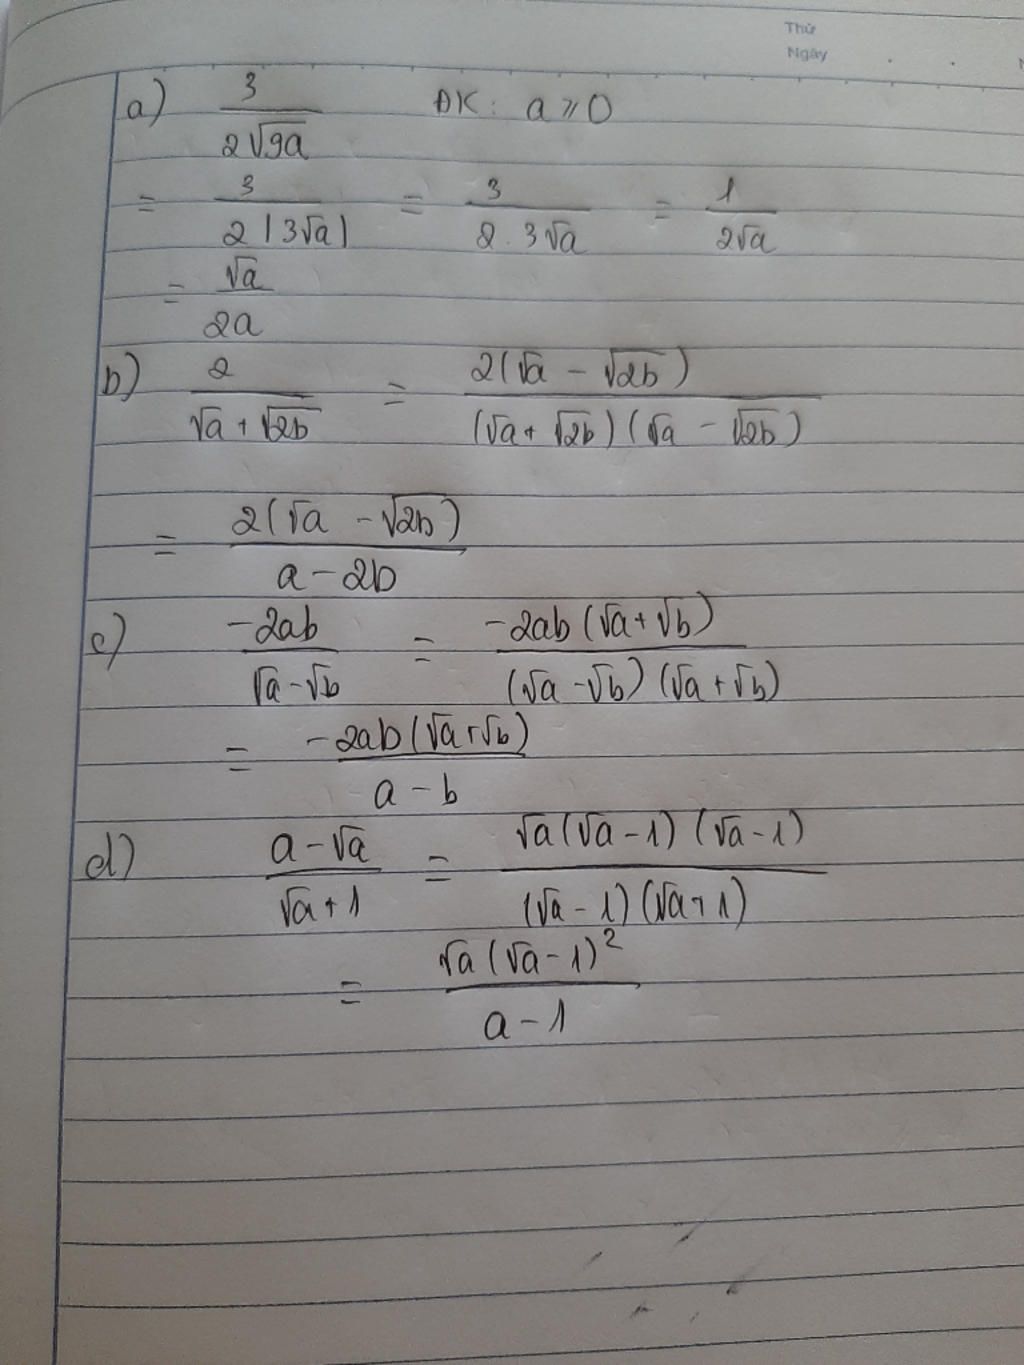 Thứ
Ngày
a) 3/(2√9a) ĐK: a ⩾ 0
= 3/(2|3√a|) = 3/(2.3√a) = 1/(2√a)
= √a/(2a)
b) 2/(√a + √2b) = 2(√a - √2b)/((√a + √2b)(√a - √2b))
= 2(√a - √2b)/(a - 2b)
c) -2ab/(√a - √b) = -2ab(√a + √b)/((√a - √b)(√a + √b))
= -2ab(√a + √b)/(a - b)
d) (a - √a)/(√a + 1) = √a(√a - 1)(√a - 1)/((√a - 1)(√a + 1))
= √a(√a - 1)²/(a - 1)